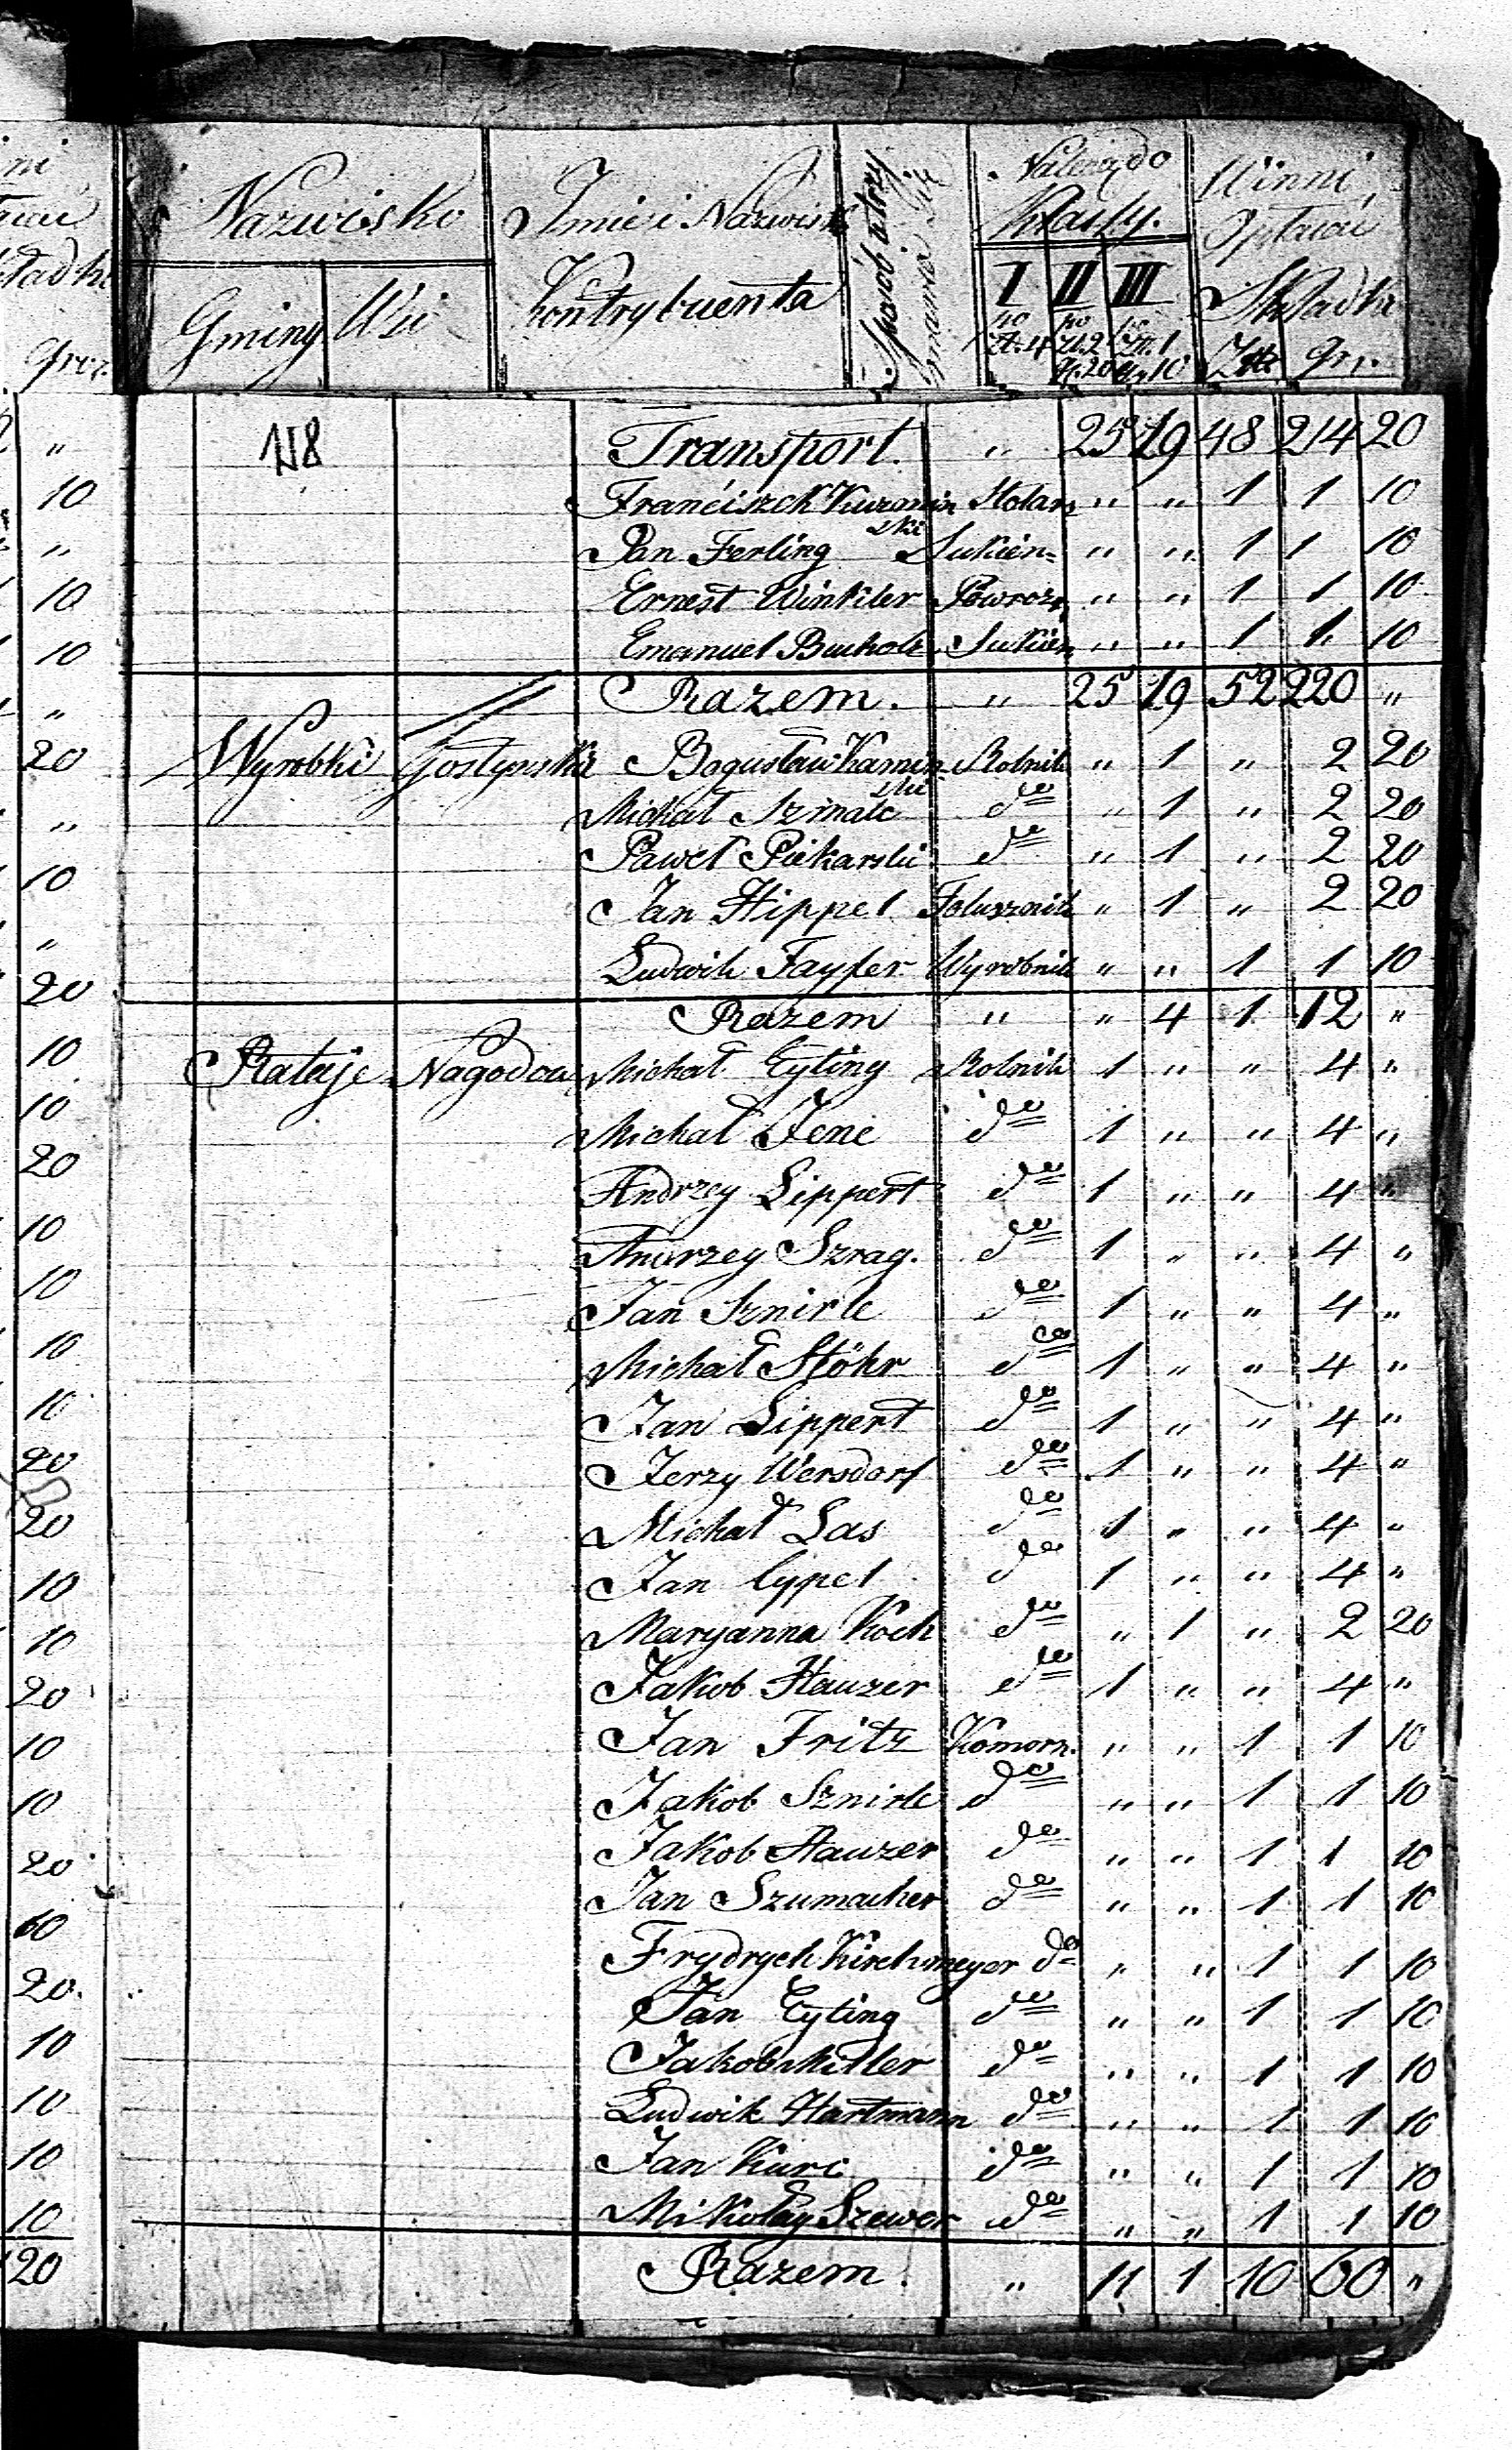 Nazwisko
Gminy Wsi
Imie i Nazwisk
Kontrybuenta
Sposób utrzy
mania się
Należą do
Klassy.
I II III
po Zł. 4 po Zł. 2 gr. 20 po Zł. 1 gr. 10
Winni
Opłacić
Składki
Złt. gr.
N8 Transport. " 25 19 48 214 20
Franciszek Kuzmin ski Stolarz " " 1 1 10
Jan Ferling Sukien= " " 1 1 10
Ernest Winkler Powrozn " " 1 1 10
Emanuel Bucholc Sukien " " 1 1 10
Razem. " 25 19 52 220 "
Wyrobki Gostynskie Bogusław Kamin ski Rolnik " 1 " 2 20
Michał Szmalc do " 1 " 2 20
Paweł Piekarski do " 1 " 2 20
Jan Hippel Folusznik " 1 " 2 20
Ludwik Fayfer Wyrobnik " " 1 1 10
Razem " " 4 1 12 "
Rataje Nagodow Michał Eyting Rolnik 1 " " 4 "
Michał Jene do 1 " " 4 "
Andrzey Lippert do 1 " " 4 "
Andrzey Szrag. do 1 " " 4 "
Jan Sznirle do 1 " " 4 "
Michał Stöhr do 1 " " 4 "
Jan Lippert do 1 " " 4 "
Jerzy Wersdorf do 1 " " 4 "
Michał Las do 1 " " 4 "
Jan Cypel do 1 " " 4 "
Maryanna Koch do " 1 " 2 20
Jakob Hauzer do 1 " " 4 "
Jan Fritz Komorn. " " 1 1 10
Jakob Sznirle do " " 1 1 10
Jakob Hauzer do " " 1 1 10
Jan Szumacher do " " 1 1 10
Frydrych Kirchmeyer do " " 1 1 10
Jan Eyting do " " 1 1 10
Jakob Miller do " " 1 1 10
Ludwik Hartmann do " " 1 1 10
Jan Kurc do " " 1 1 10
Mikołay Szewer do " " 1 1 10
Razem. " 11 1 10 60 "